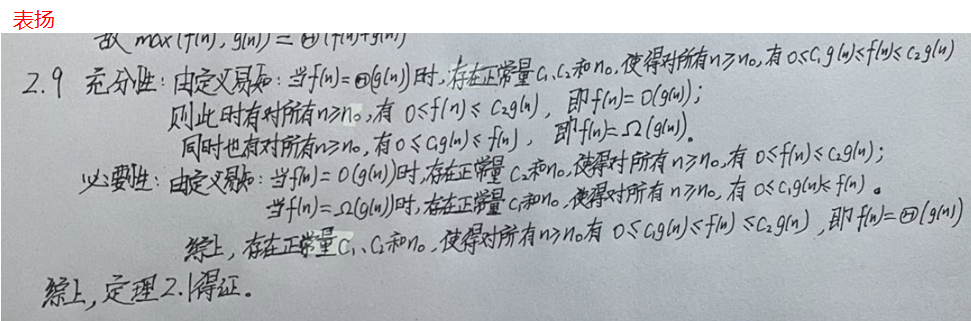 表扬
故 max(f(n), g(n)) = Θ(f(n)+g(n))
2.9 充分性：由定义易知：当f(n)=Θ(g(n))时，存在正常量C₁、C₂和n₀，使得对所有n≥n₀，有0≤C₁g(n)≤f(n)≤C₂g(n)
则此时有对所有n≥n₀，有 0≤f(n)≤C₂g(n)，即f(n)=O(g(n))；
同时也有对所有n≥n₀，有0≤C₁g(n)≤f(n)，即f(n)=Ω(g(n))。
必要性：由定义易知：当f(n)=O(g(n))时，存在正常量C₂和n₀，使得对所有n≥n₀，有 0≤f(n)≤C₂g(n)；
当f(n)=Ω(g(n))时，存在正常量C₁和n₀，使得对所有n≥n₀，有 0≤C₁g(n)≤f(n)。
综上，存在正常量C₁、C₂和n₀，使得对所有n≥n₀有 0≤C₁g(n)≤f(n)≤C₂g(n)，即f(n)=Θ(g(n))
综上，定理2.1得证。